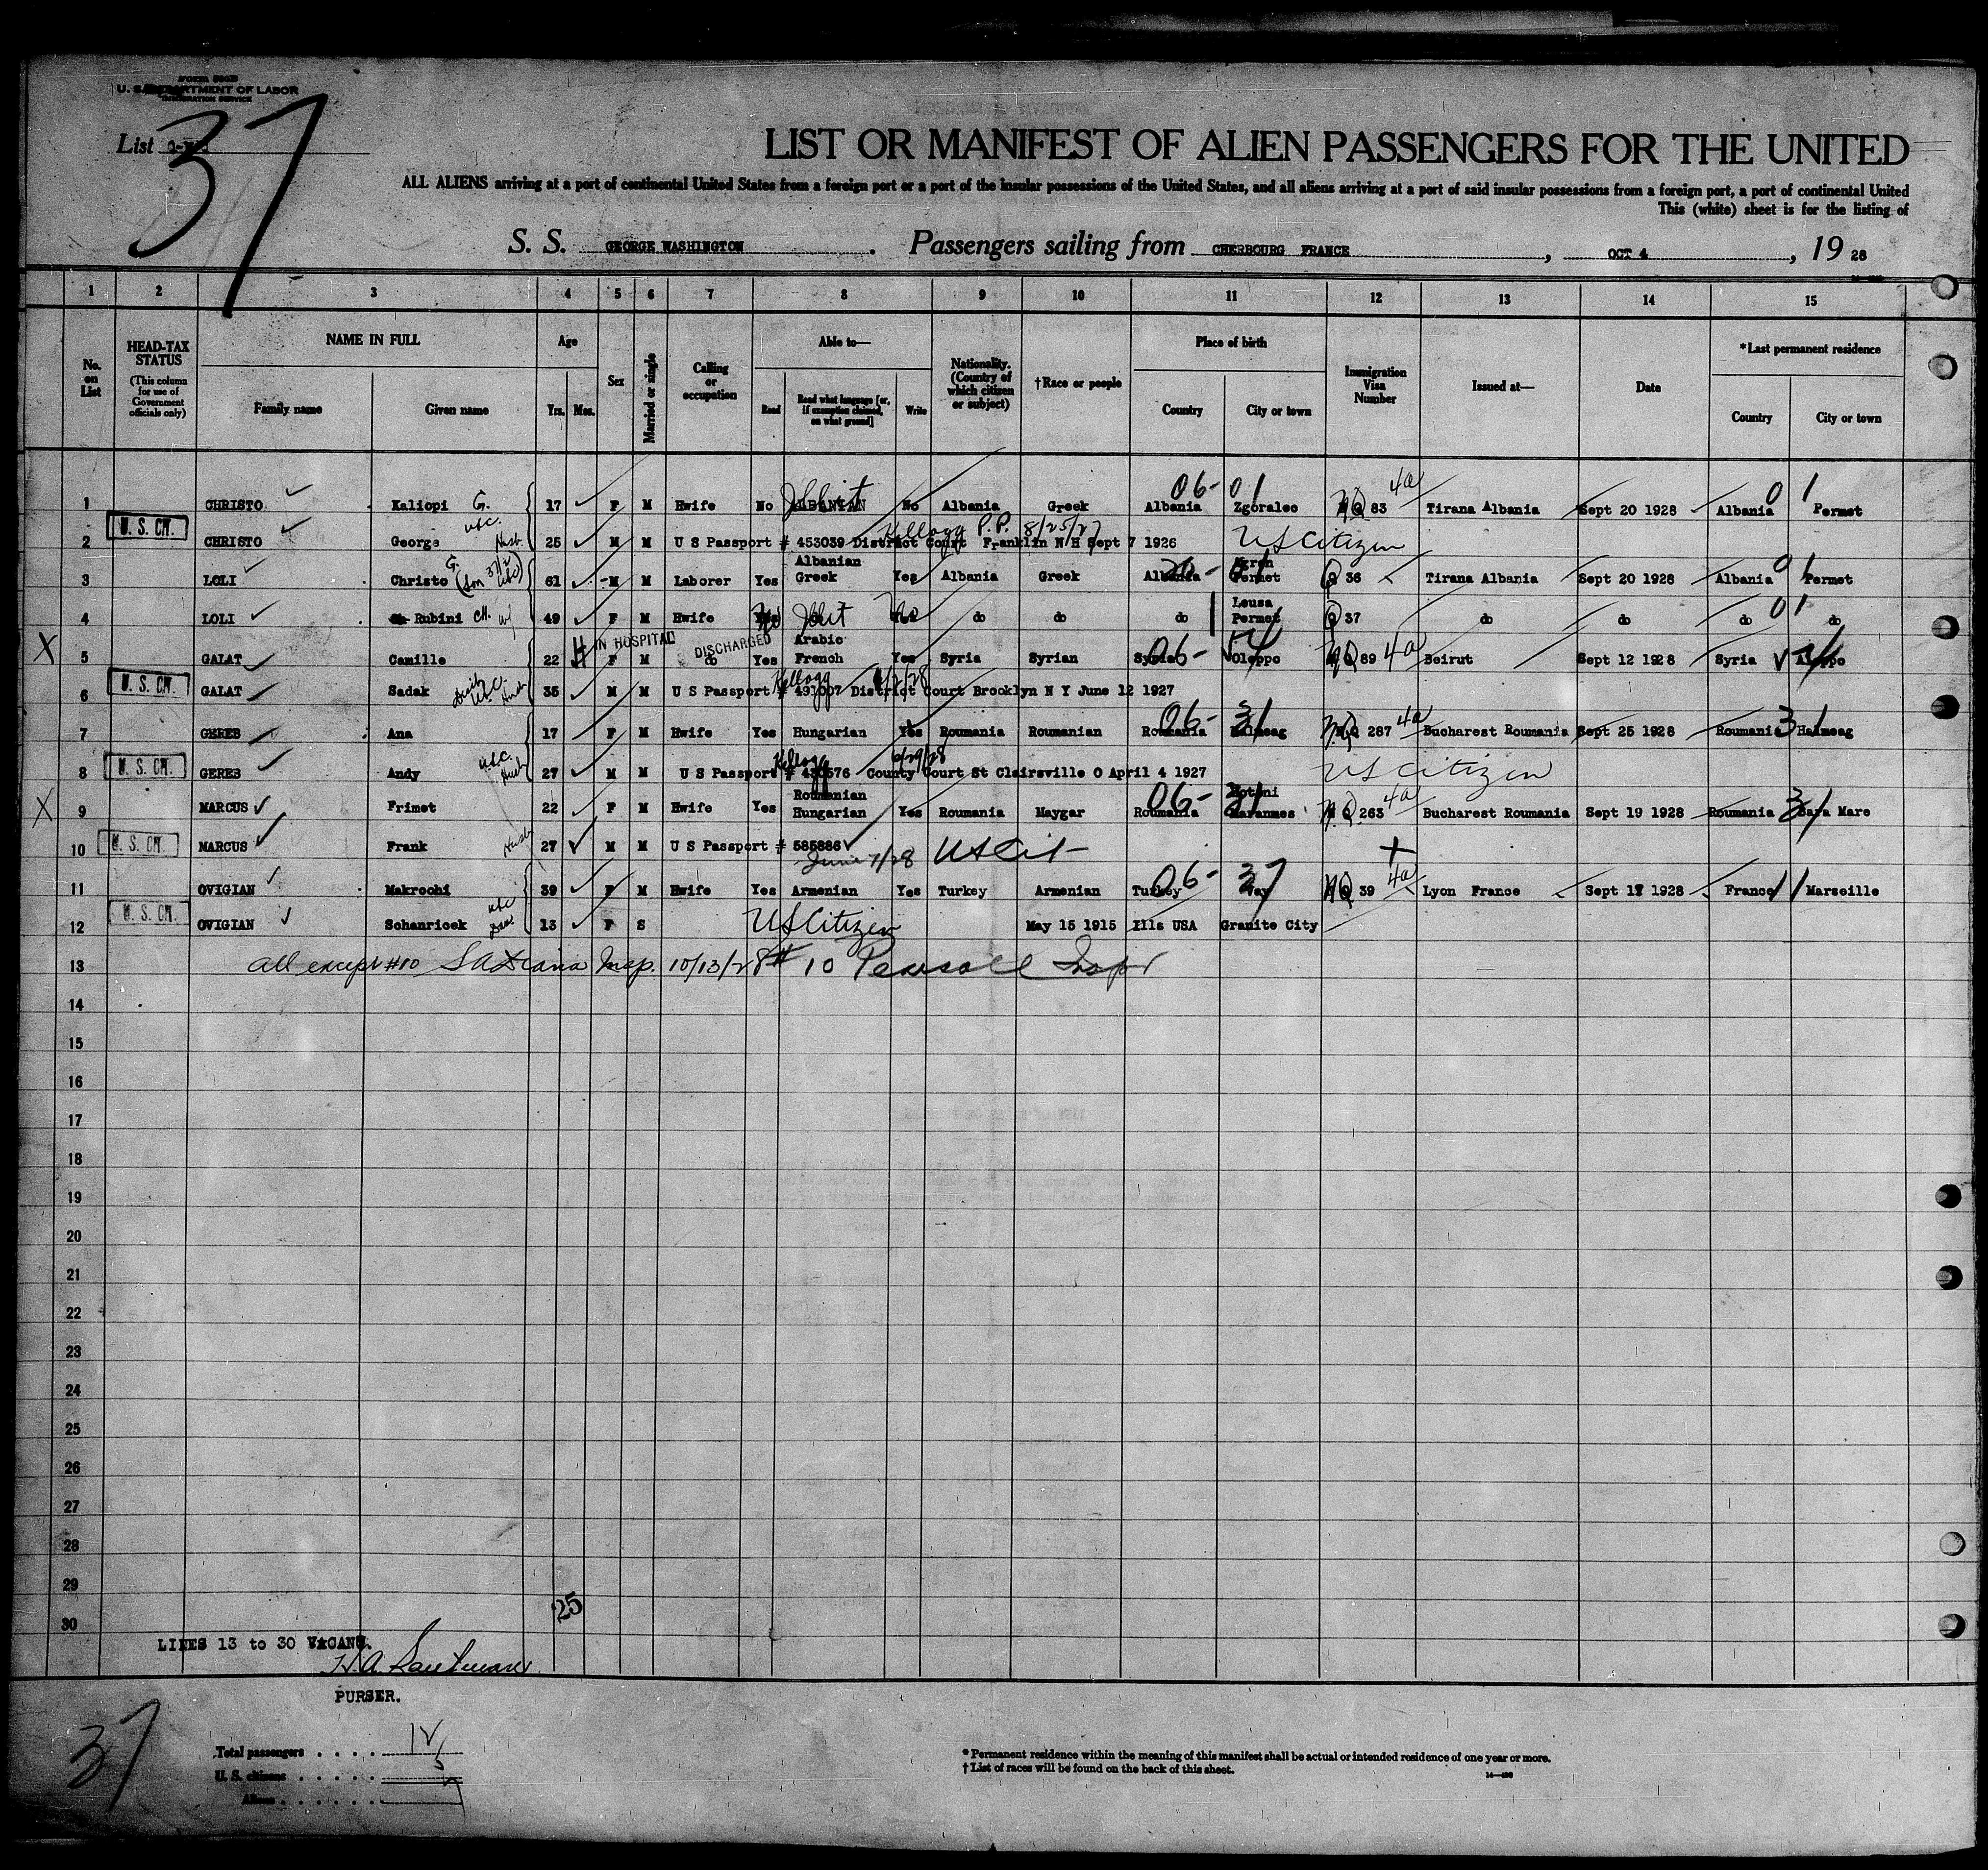 FORM 500B
U. S. DEPARTMENT OF LABOR
IMMIGRATION SERVICE
37
List
LIST OR MANIFEST OF ALIEN PASSENGERS FOR THE UNITED
ALL ALIENS arriving at a port of continental United States from a foreign port or a port of the insular possessions of the United States, and all aliens arriving at a port of said insular possessions from a foreign port, a port of continental United
This (white) sheet is for the listing of
S. S. GEORGE WASHINGTON . Passengers sailing from CHERBOURG FRANCE , OCT 4 , 19 28
1 2 3 4 5 6 7 8 9 10 11 12 13 14 15
No. on List HEAD-TAX STATUS (This column for use of Government officials only) NAME IN FULL Age Sex Married or single Calling or occupation Able to— Nationality. (Country of which citizen or subject) †Race or people Place of birth Immigration Visa Number Issued at— Date *Last permanent residence
Family name Given name Yrs. Mos. Read Read what language [or, if exemption claimed, on what ground] Write Country City or town Country City or town
1 CHRISTO Kaliopi G. 17 F M Hwife No ALBANIAN No Albania Greek Albania 06-01 Zgoraleo NQ 83 4a Tirana Albania Sept 20 1928 Albania 01 Permet
U. S. CIT.
2 CHRISTO George usc. Husb. 25 M M U S Passport # 453039 District Court Franklin N H Sept 7 1926 Kellogg P.P. 8/25/27 US Citizen
3 LOLI Christo G. 61 M M Laborer Yes Albanian Greek Yes Albania Greek Albania Permet Q 36 Tirana Albania Sept 20 1928 Albania 01 Permet
4 LOLI Rubini Ch. 49 F M Hwife do do do Leusa Permet Q 37 do do do 01 do
X 5 GALAT Camille 22 H IN HOSPITAL DISCHARGED F M do Yes Arabic French Yes Syria Syrian Syria 06- Oleppo NQ 89 4a Beirut Sept 12 1928 Syria Aleppo
U. S. CIT.
6 GALAT Sadak usc. Husb 35 M M U S Passport # 491007 District Court Brooklyn N Y June 12 1927 Kellogg
7 GEREB Ana 17 F M Hwife Yes Hungarian Yes Roumania Roumanian Roumania 06-31 Halmeag NQ 287 4a Bucharest Roumania Sept 25 1928 Roumania 31 Halmeag
U. S. CIT.
8 GEREB Andy usc. Husb 27 M M U S Passport # 430576 County Court St Clairsville O April 4 1927 Kellogg 6/29/28 US Citizen
X 9 MARCUS Frimet 22 F M Hwife Yes Roumanian Hungarian Yes Roumania Magyar Roumania 06-31 NQ 263 4a Bucharest Roumania Sept 19 1928 Roumania 31 Bara Mare
U. S. CIT.
10 MARCUS Frank Husb 27 M M U S Passport # 585886 June 7/28 US Cit
11 OVIGIAN Makroohi 39 F M Hwife Yes Armenian Yes Turkey Armenian Turkey 06-37 NQ 39 4a Lyon France Sept 17 1928 France 11 Marseille
U. S. CIT.
12 OVIGIAN Schanricek usc Dau 13 F S US Citizen May 15 1915 Ills USA Granite City
13 All except #10 Insp. 10/13/28 #10 Pearsall Inspr
14
15
16
17
18
19
20
21
22
23
24
25
26
27
28
29
30
25
LINES 13 to 30 VACANT.
PURSER.
37
Total passengers . . . . 12
U. S. citizens . . . . . 5
Aliens . . . . . . 7
* Permanent residence within the meaning of this manifest shall be actual or intended residence of one year or more.
† List of races will be found on the back of this sheet.